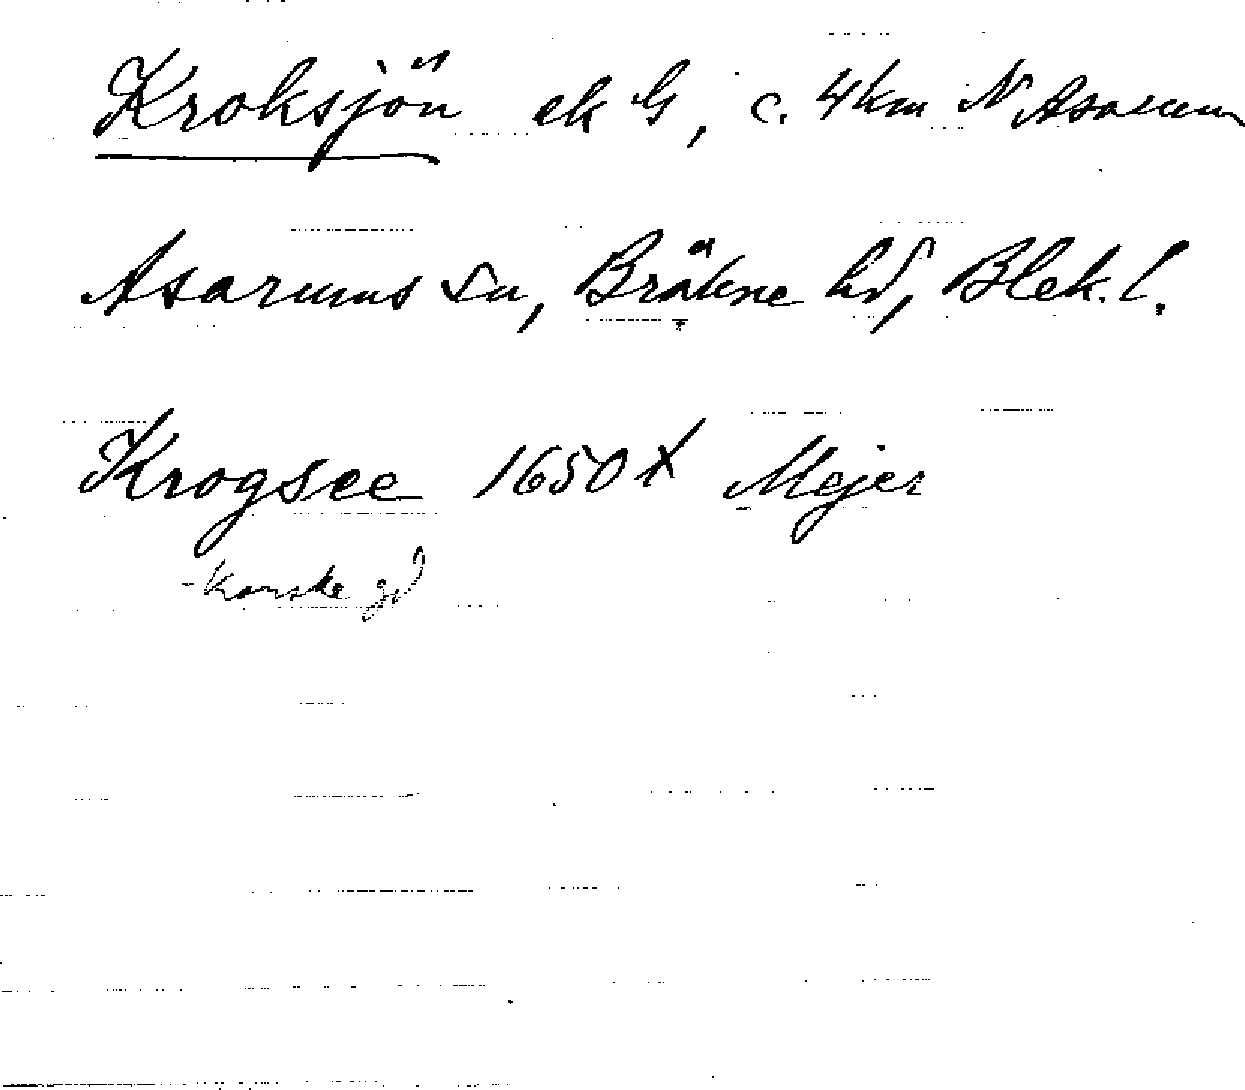 Kroksjön ek G, c. 4 km N Asarum
Asarums sn, Bräkne hd, Blek. l.
Krogsee 1650 t Mejer
- kanske gd